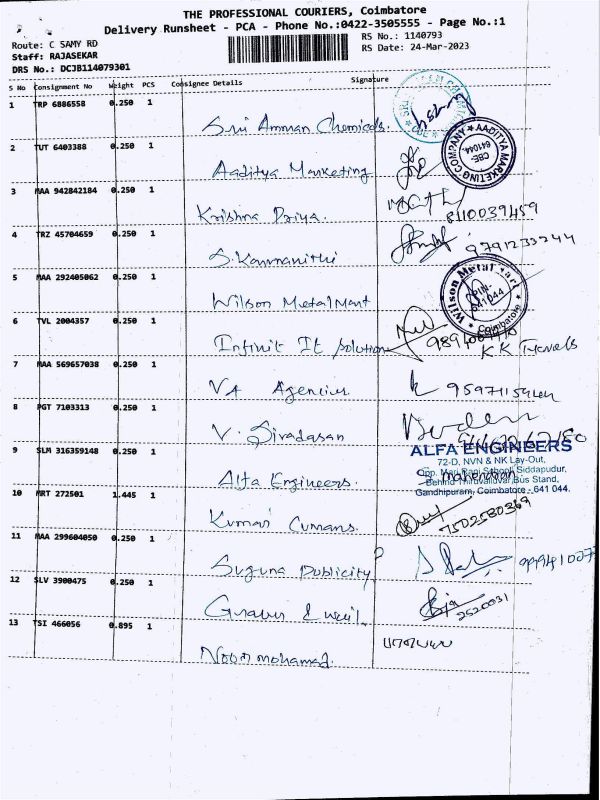 THE PROFESSIONAL COURIERS, Coimbatore
Delivery Runsheet - PCA - Phone No.:0422-3505555 - Page No.:1
Route: C SAMY RD
Staff: RAJASEKAR
DRS No.: DCJB114079301
RS No.: 1140793
RS Date: 24-Mar-2023
S No Consignment No Weight PCS Consignee Details Signature
1 TRP 6886558 0.250 1
Sri Amman Chemicals.
2 TUT 6403388 0.250 1
Aaditya Marketing
AADITYA MARKETING COMPANY
CBE-
641044.
3 MAA 942842184 0.250 1
Krishna Priya.
8110039459
4 TRZ 45704659 0.250 1
S. Kanmanithi
9791233244
5 MAA 292405062 0.250 1
Wilson Metal Mart
Wilson Metal Mart
PIN-
641044
Coimbatore
6 TVL 2004357 0.250 1
Infinit It Solution
KK Travels
7 MAA 569657038 0.250 1
VA Agencies
8 PGT 7103313 0.250 1
V. Sivadasan
9 SLM 316359148 0.250 1
Alfa Engineers.
ALFA ENGINEERS
72-D, NVN & NK Lay-Out,
Opp. Mari Rani School, Siddapudur,
Behind Thiruvalluvar Bus Stand,
Gandhipuram, Coimbatore - 641 044.
10 MRT 272501 1.445 1
Kumar Cumans.
7502580369
11 MAA 299604050 0.250 1
Suguna Publicity
12 SLV 3900475 0.250 1
2520031
13 TSI 466056 0.895 1
Noor mohamad.